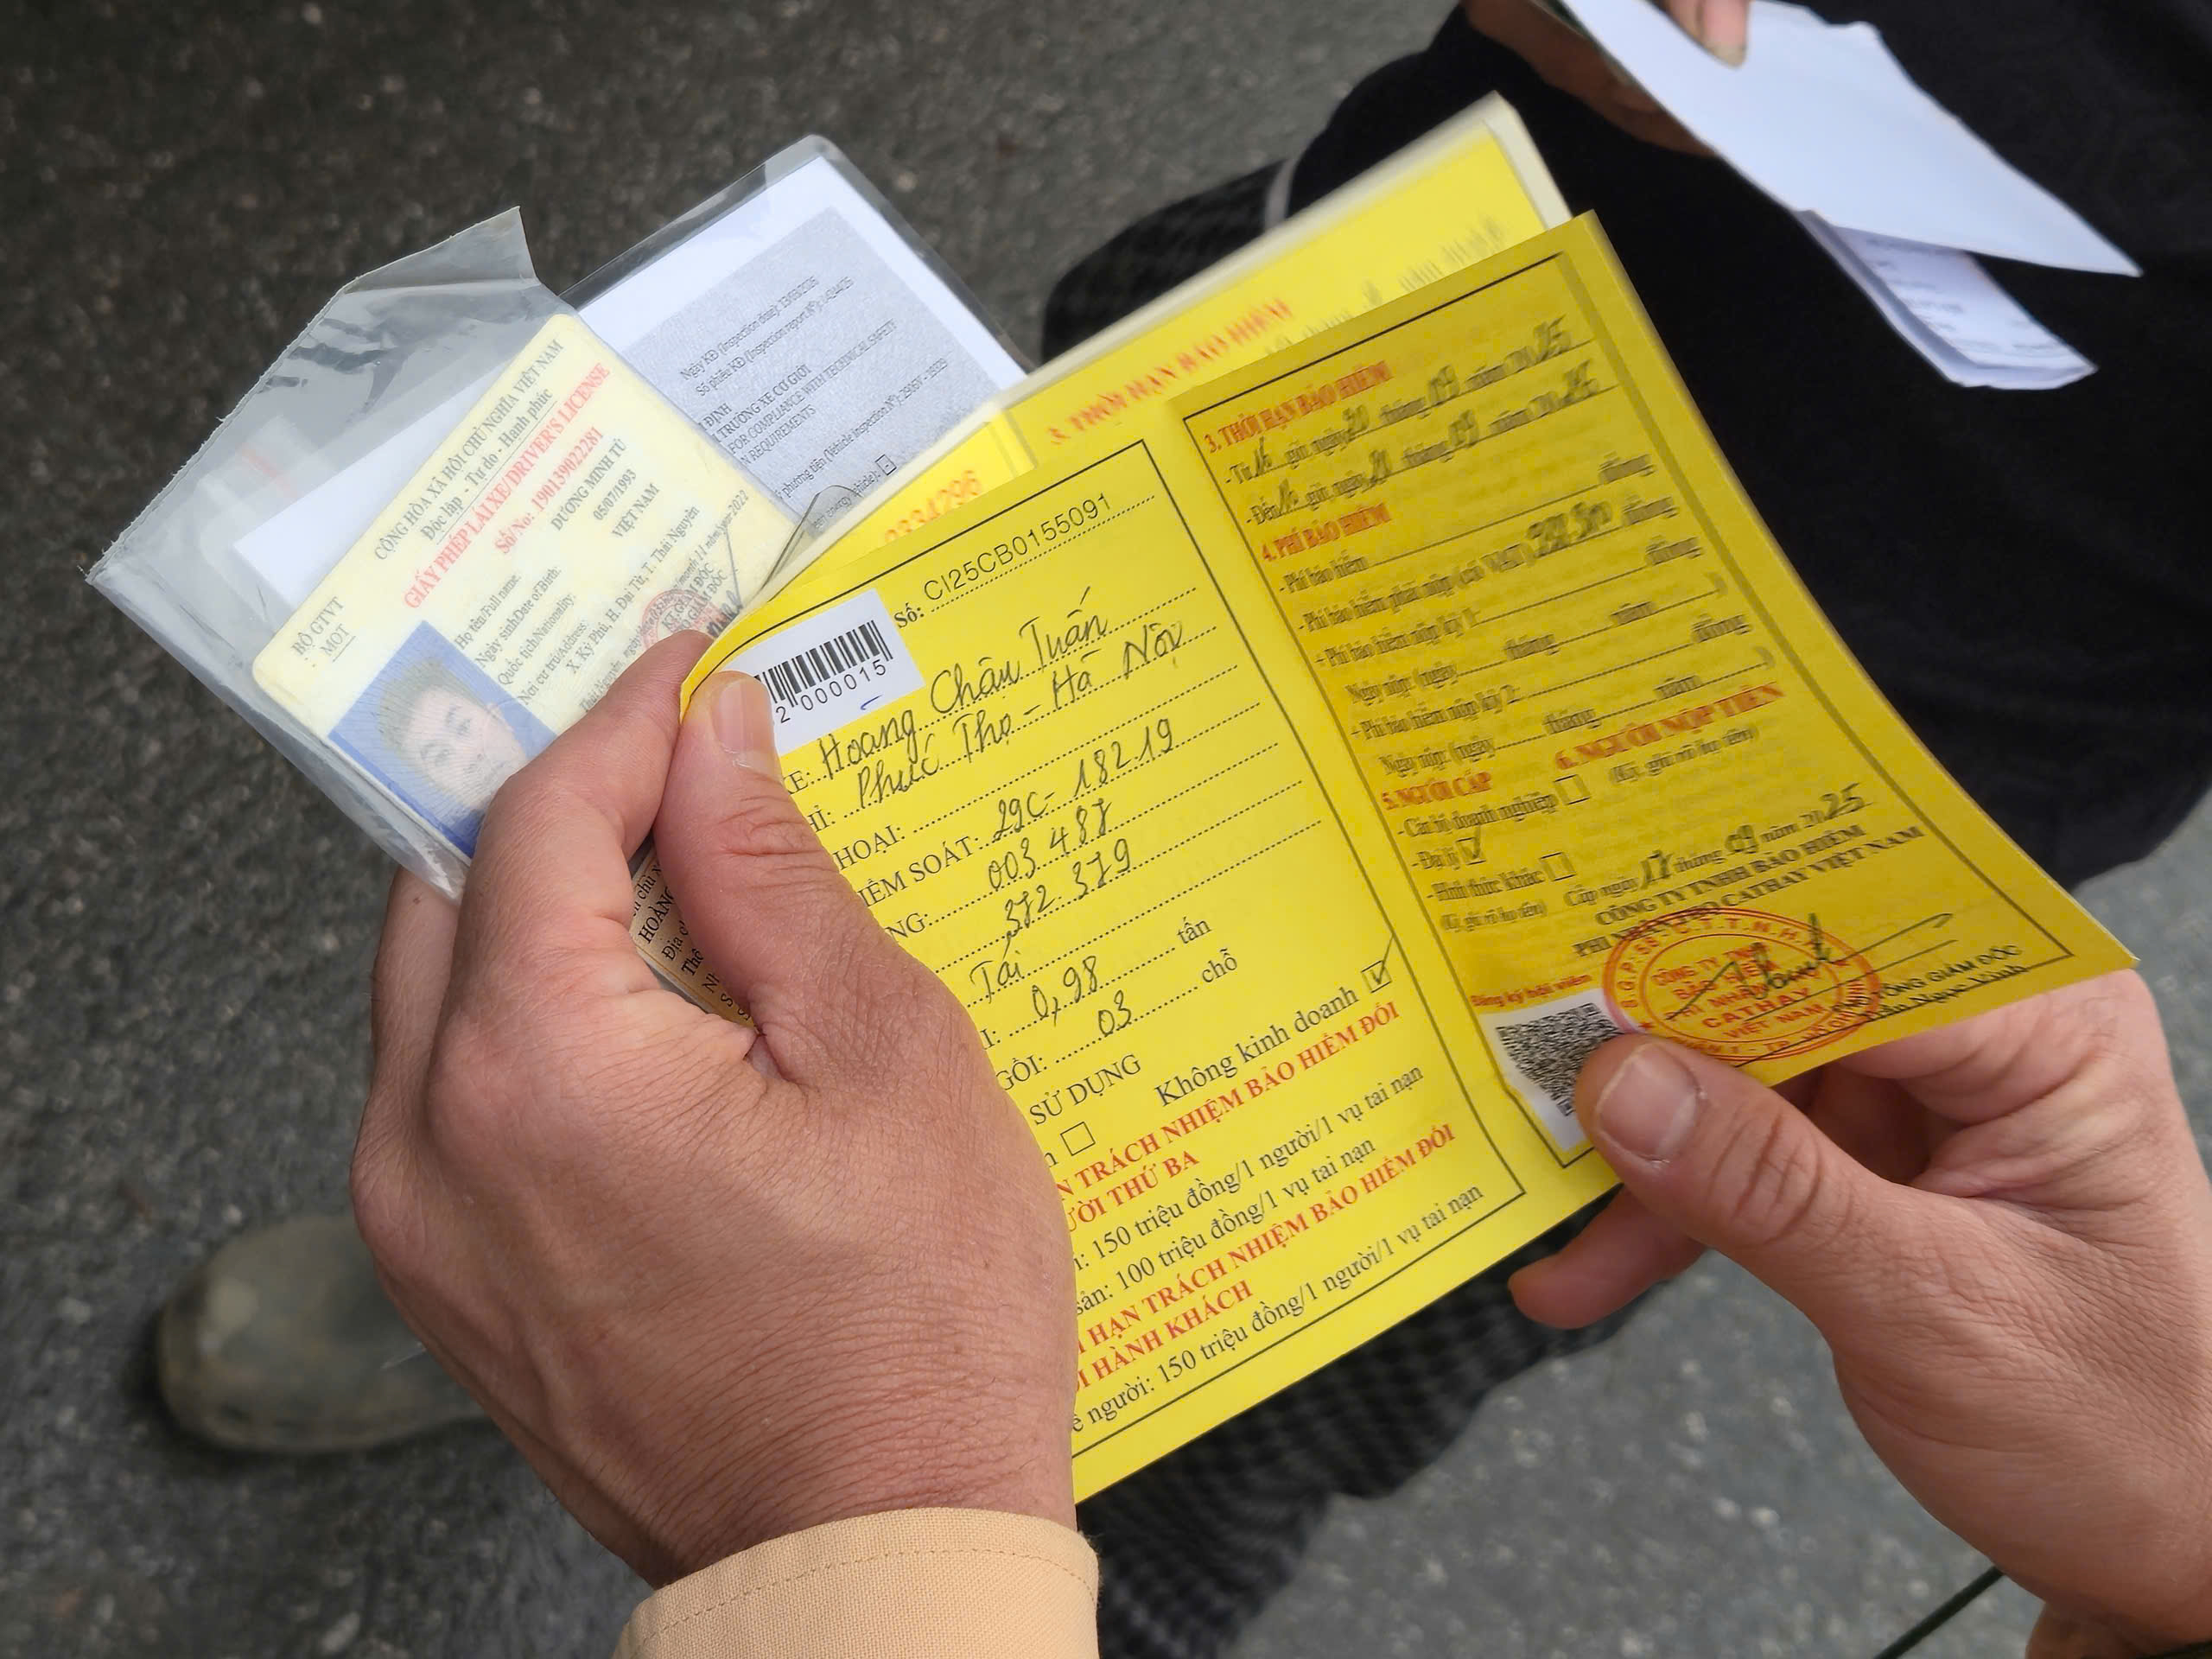 CỘNG HÒA XÃ HỘI CHỦ NGHĨA VIỆT NAM
Độc lập - Tự do - Hạnh phúc
GIẤY PHÉP LÁI XE/DRIVER'S LICENSE
Số/No: 190139022281
BỘ GTVT
MOT
Họ tên/Full name:
DƯƠNG MINH TÚ
Ngày sinh/Date of Birth:
05/07/1993
Quốc tịch/Nationality:
VIỆT NAM
Nơi cư trú/Address:
X. Ký Phú, H. Đại Từ, T. Thái Nguyên
Ngày KĐ (Inspection date):
Số phiếu KĐ (Inspection report Nº):
I ĐỊNH
I TRƯỜNG XE CƠ GIỚI
FOR COMPLIANCE WITH TECHNICAL SAFETY
N REQUIREMENTS
phương tiện (Vehicle inspection Nº):
3. THỜI HẠN BẢO HIỂM
0334296
HOÀNG
Địa c
Số: CI25CB0155091
2000015
XE: Hoàng Châu Tuấn
HỈ: Phúc Thọ - Hà Nội
HOẠI:
IỂM SOÁT: 29C- 18219
003487
NG: 372 379
Tải
I: 0,98 tấn
GỒI: 03 chỗ
SỬ DỤNG
Không kinh doanh
N TRÁCH NHIỆM BẢO HIỂM ĐỐI
ƯỜI THỨ BA
i: 150 triệu đồng/1 người/1 vụ tai nạn
sản: 100 triệu đồng/1 vụ tai nạn
I HẠN TRÁCH NHIỆM BẢO HIỂM ĐỐI
ỚI HÀNH KHÁCH
ề người: 150 triệu đồng/1 người/1 vụ tai nạn
3. THỜI HẠN BẢO HIỂM
- Từ giờ ngày 20 tháng 09 năm 2025
- Đến giờ ngày 20 tháng 09 năm
4. PHÍ BẢO HIỂM
- Phí bảo hiểm đồng
- Phí bảo hiểm phải nộp (có VAT) đồng
+ Phí bảo hiểm nộp kỳ 1: đồng
Ngày nộp: (ngày tháng năm )
- Phí bảo hiểm nộp kỳ 2: đồng
Ngày nộp: (ngày tháng năm )
5. NGƯỜI CẤP
6. NGƯỜI NỘP TIỀN
- Cán bộ doanh nghiệp
(Ký, ghi rõ họ tên)
- Đại lý
- Hình thức khác
(Ký, ghi rõ họ tên)
Cấp ngày 17 tháng 09 năm 2025
CÔNG TY TNHH BẢO HIỂM
PHI NHÂN THỌ CATHAY VIỆT NAM
Đăng ký hội viên
CÔNG TY TNHH
BẢO HIỂM
PHI NHÂN THỌ
CATHAY
VIỆT NAM
TỔNG GIÁM ĐỐC